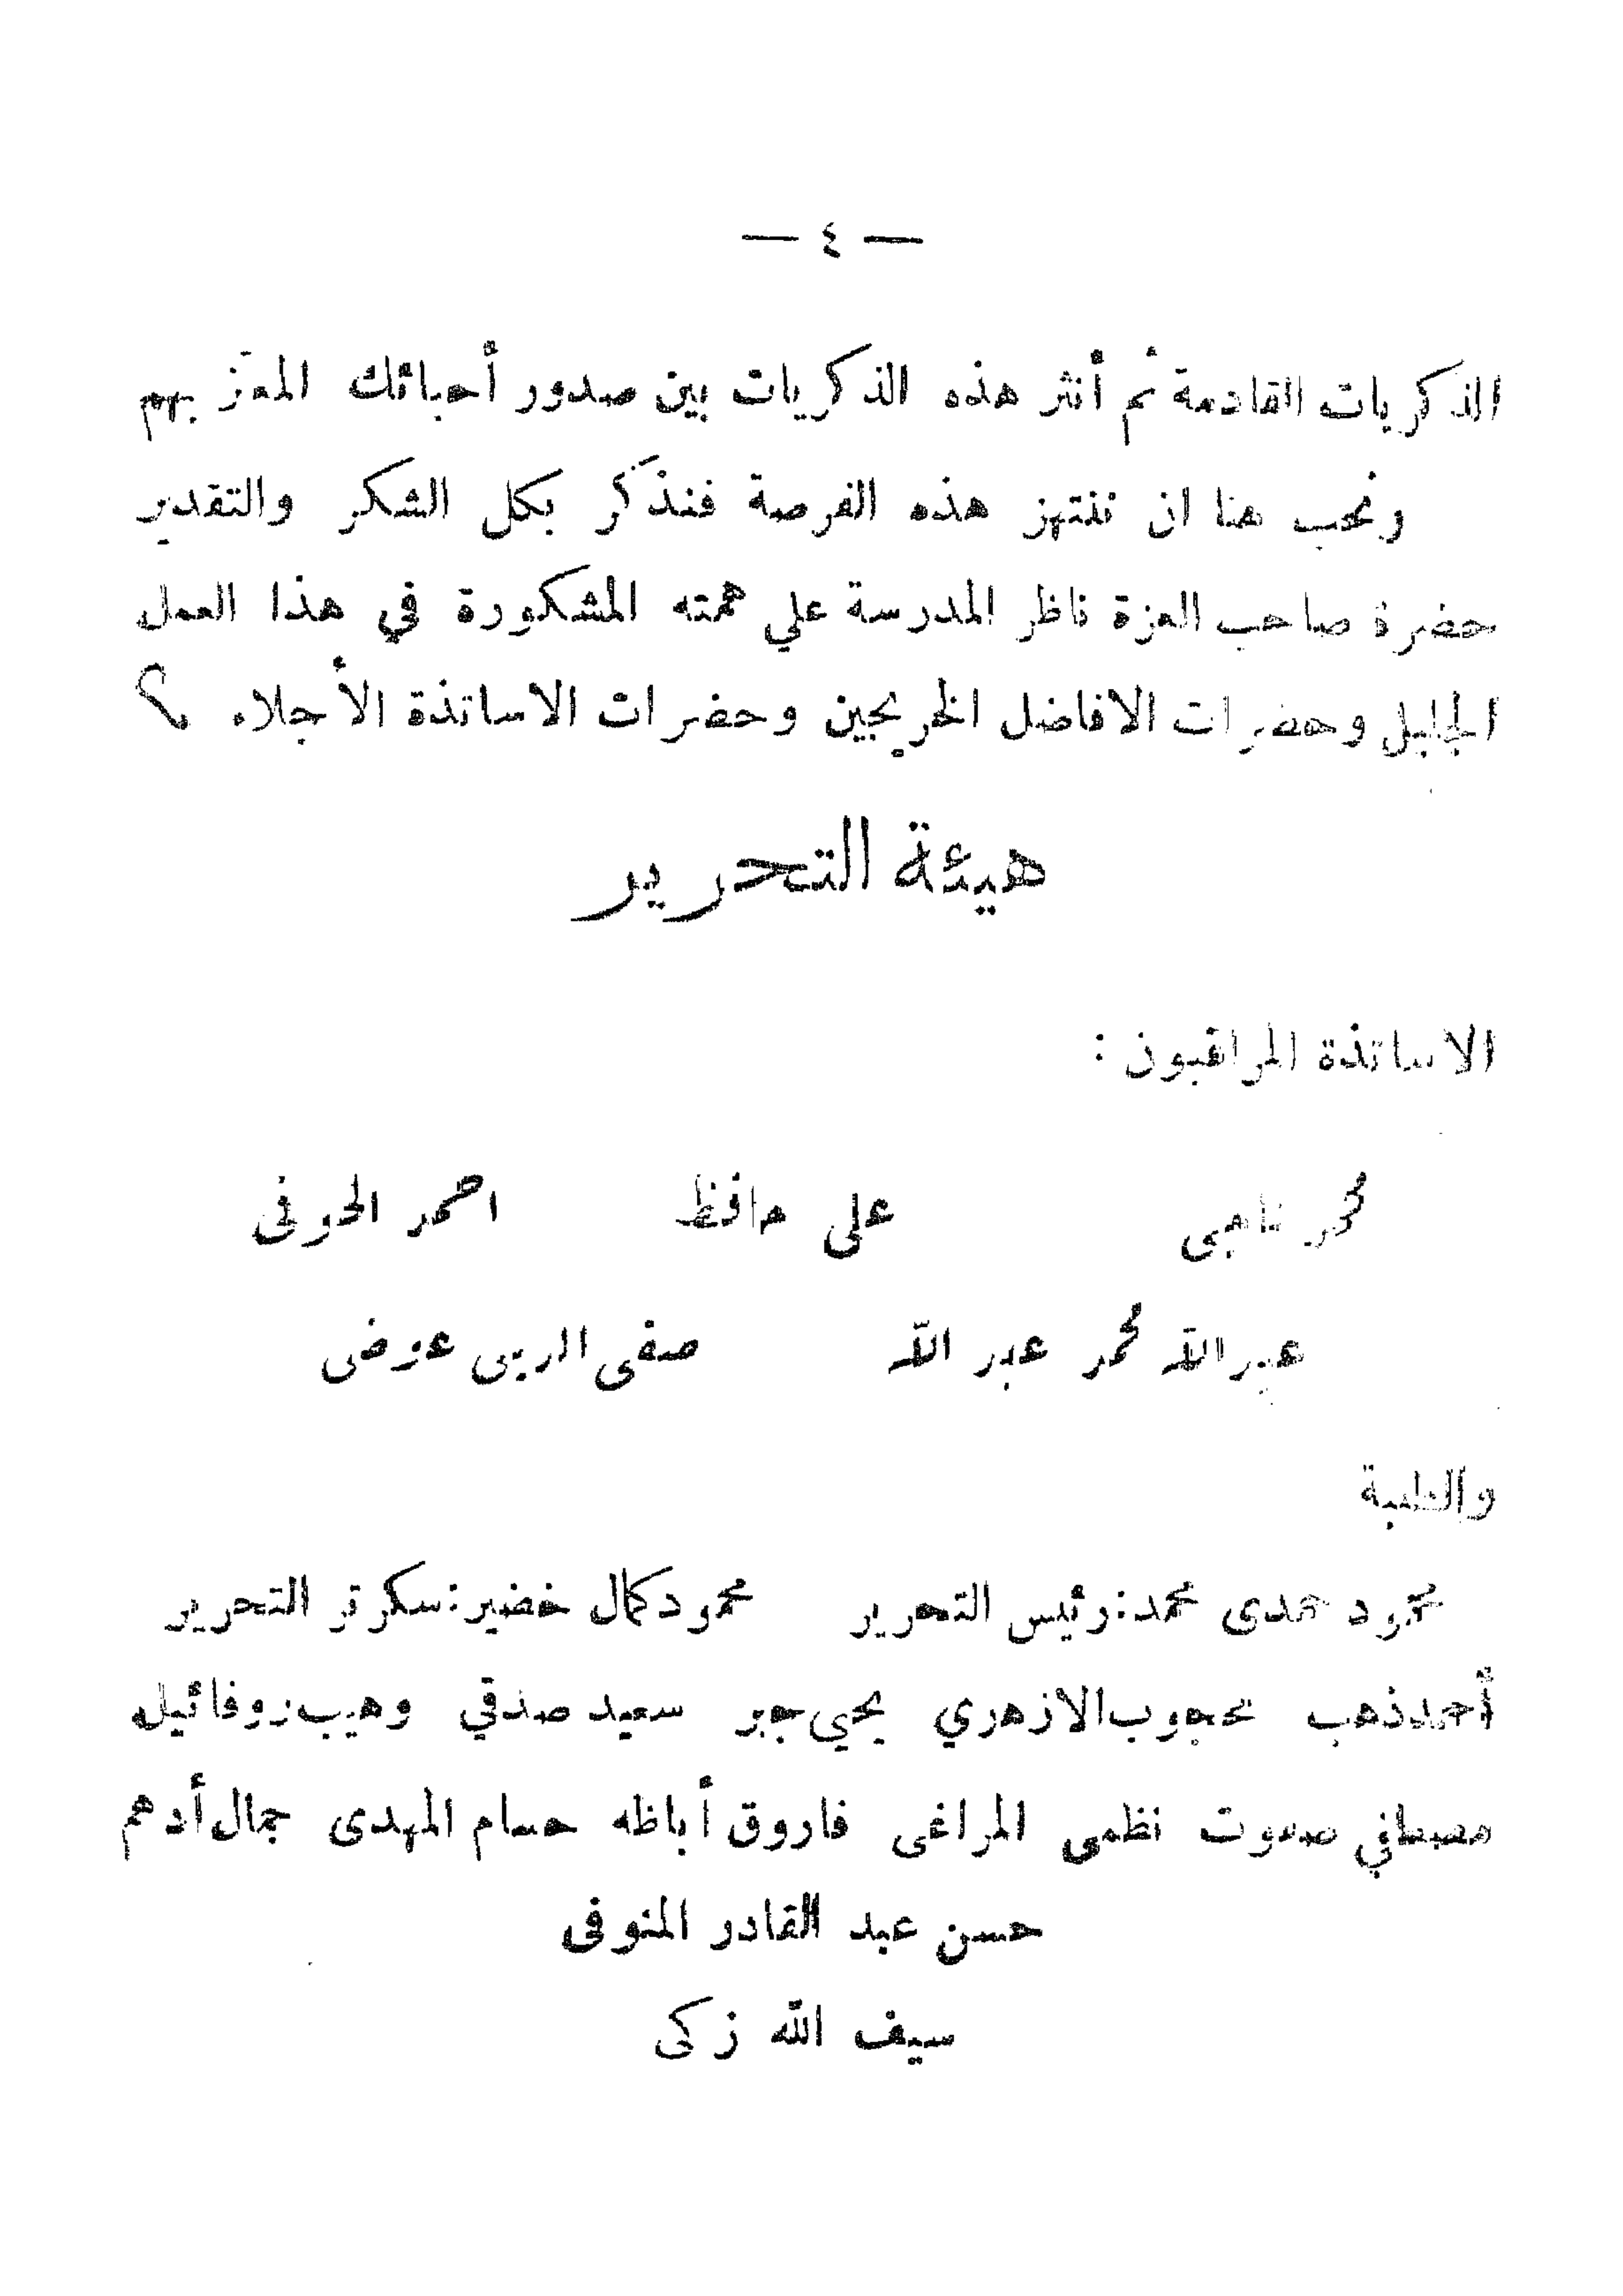 — ٤ —
الذكريات القادمة ثم أنثر هذه الذكريات بين صدور أحبائك المعتز بهم
ونحب هنا ان ننتهز هذه الفرصة فنذكر بكل الشكر والتقدير
حضرة صاحب العزة ناظر المدرسة علي همته المشكورة في هذا العمل
الجليل وحضرات الافاضل الخريجين وحضرات الاساتذة الأجلاء
هيئة التحرير
الاساتذة المراقبون :
محمد ناجى على حافظ احمد الحوفى
عبد الله محمد عبد الله صفى الدين عوض
والطلبة
محمود حمدى محمد: رئيس التحرير محمود كمال خضير: سكرتر التحرير
أحمد ذهب محجوب الازهري يحيى جبر سعيد صدقي وهيب روفائيل
مصطفي صفوت نظمى المراغى فاروق أباظه حسام المهدى جمال أدهم
حسن عبد القادر المنوفى
سيف الله زكى